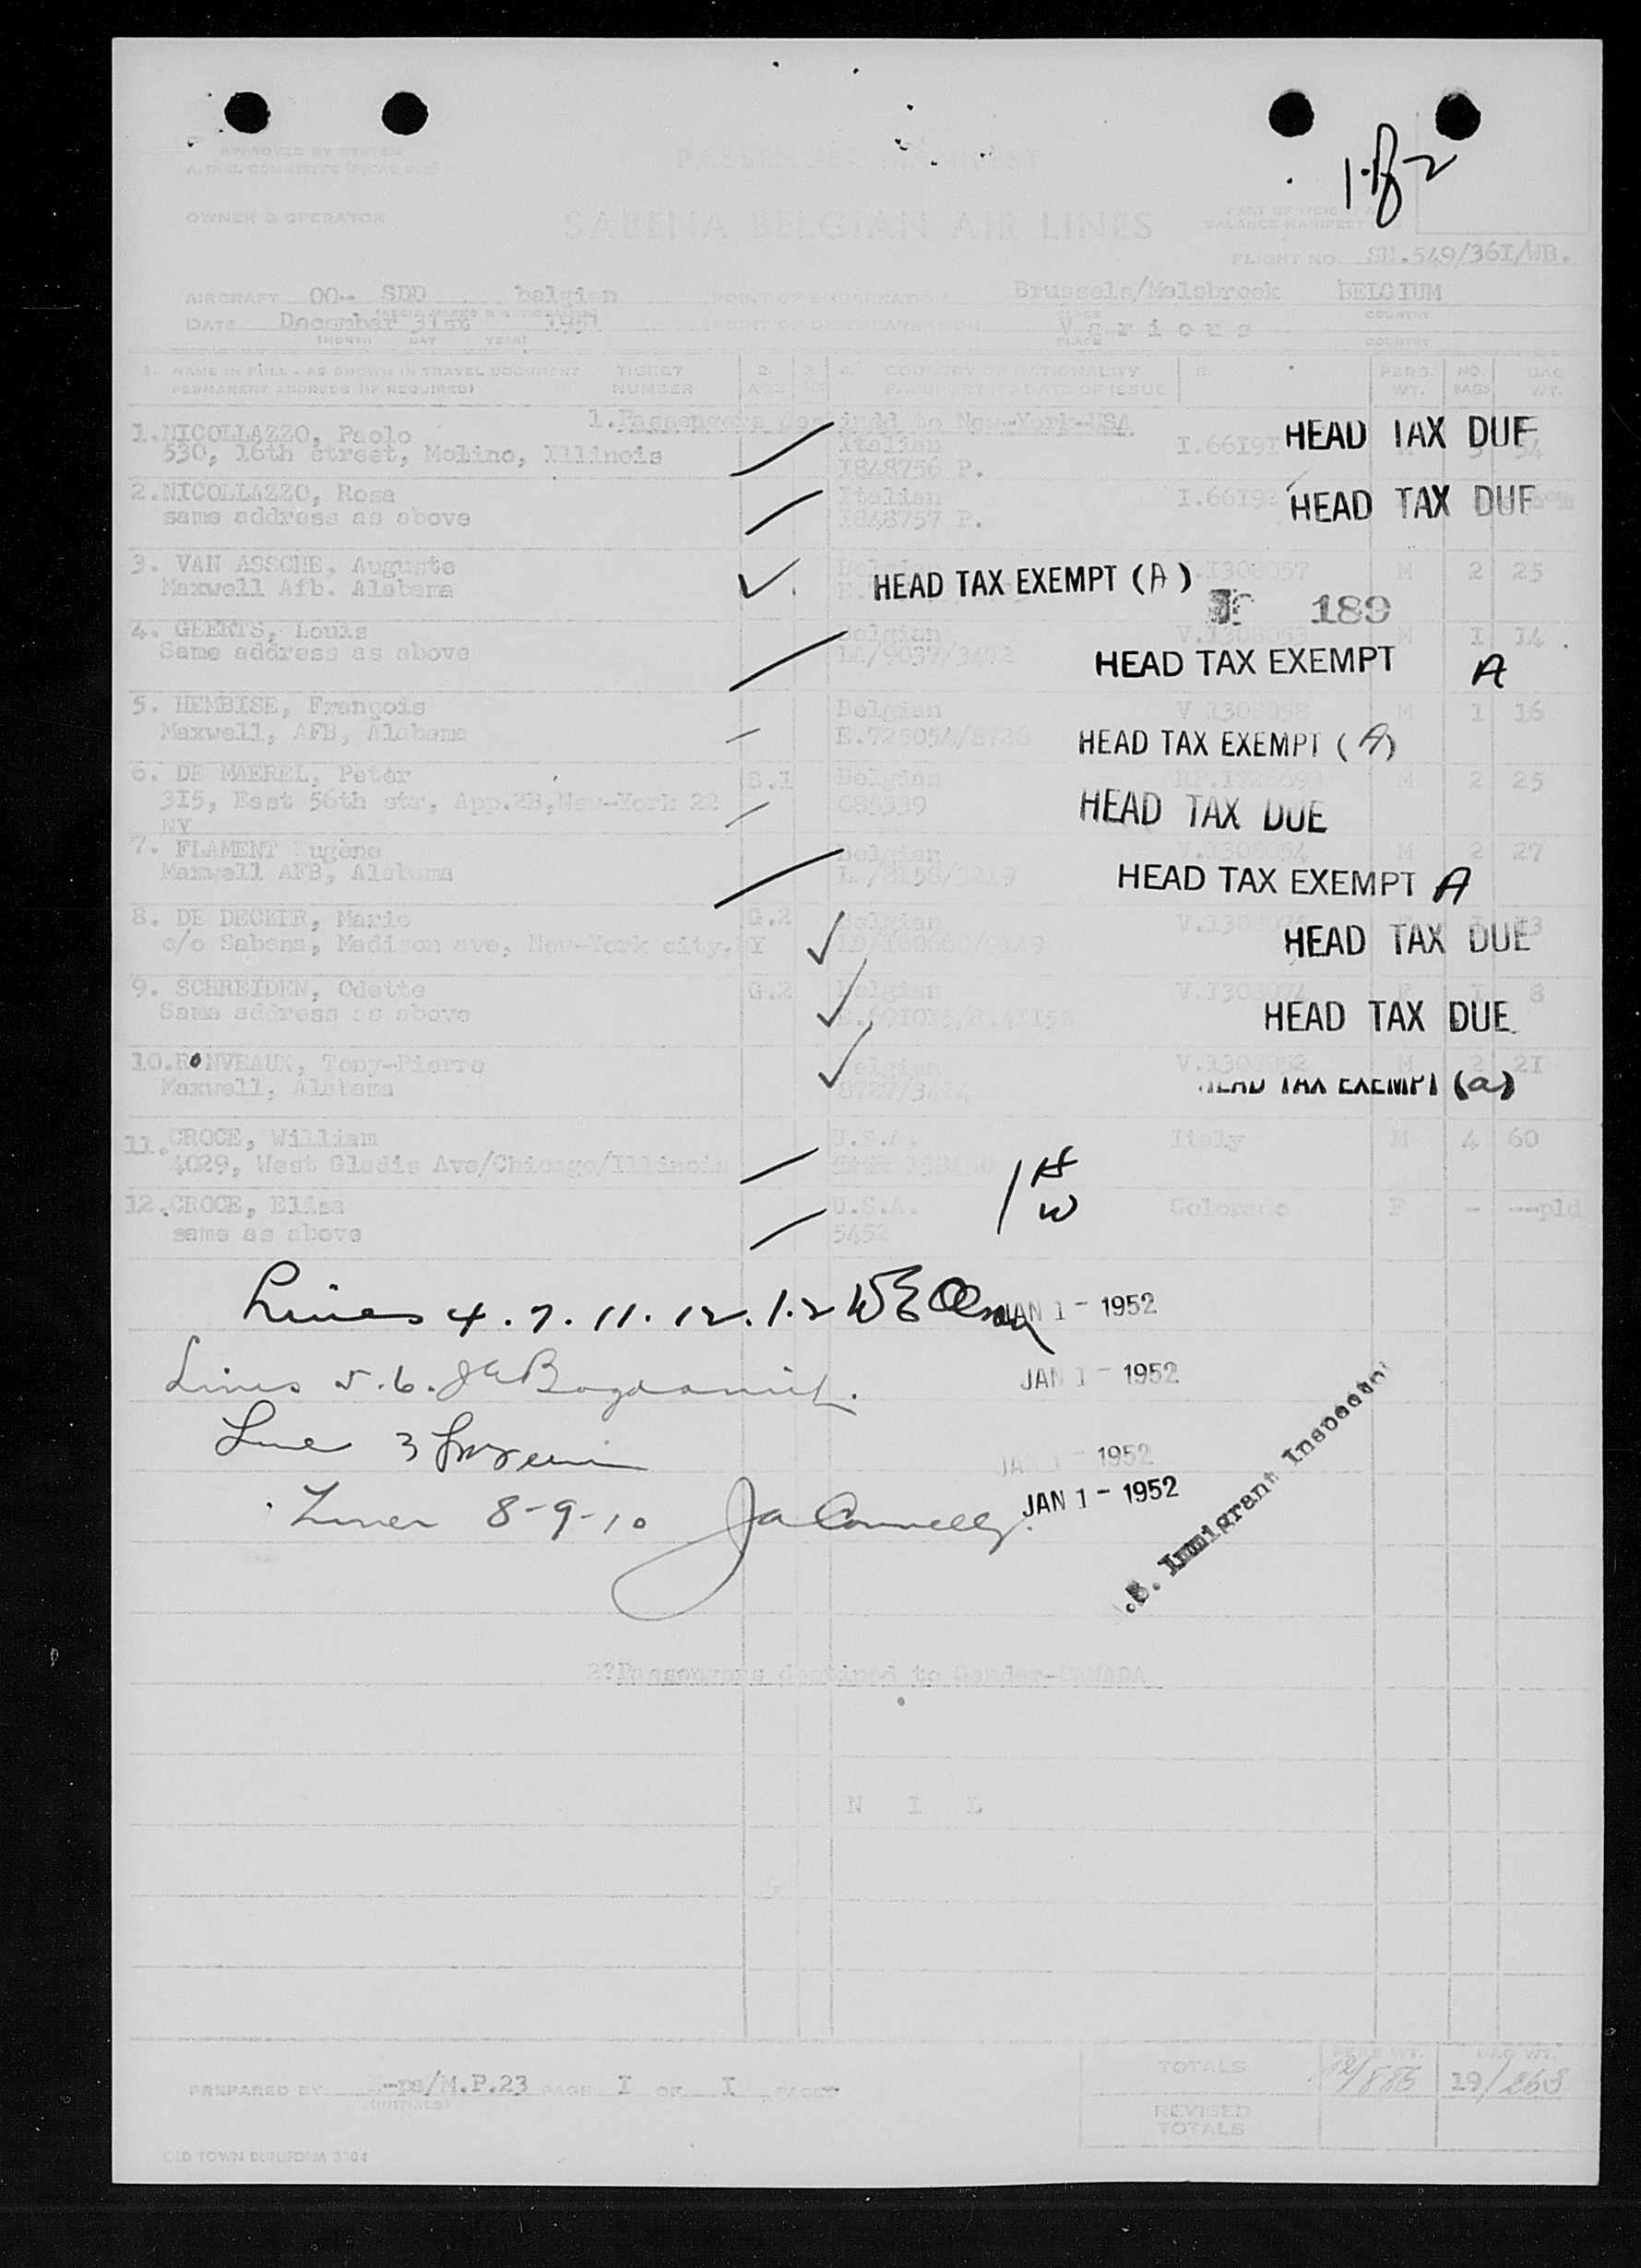 1 of 2
APPROVED BY SYSTEM
PASSENGER MANIFEST
OWNER & OPERATOR
SABENA BELGIAN AIR LINES
BALANCE MANIFEST
FLIGHT NO. SN.549/36I/WB.
AIRCRAFT OO-- SDD belgian POINT OF EMBARKATION Brussels/Melsbroek BELGIUM
PLACE COUNTRY
DATE December 31st 1951 POINT OF DISEMBARKATION V a r i o u s
(MONTH DAY YEAR) PLACE COUNTRY
1. NAME IN FULL - AS SHOWN IN TRAVEL DOCUMENT TICKET 2. 3. 4. COUNTRY OF NATIONALITY 5. PERS. NO. BAG
PERMANENT ADDRESS (IF REQUIRED) NUMBER AGE PASSPORT NO DATE OF ISSUE WT. BAGS WT.
1.Passengers destindd to New-York-USA
1.NICOLLAZZO, Paolo Italian I.66I91 HEAD TAX DUE 54
530, 16th street, Moline, Illinois 1848756 P.
2.NICOLLAZZO, Rosa Italian I.66I92 HEAD TAX DUE
same address as above 1848757 P.
3. VAN ASSCHE, Auguste HEAD TAX EXEMPT (A) .1308057 M 2 25
Maxwell Afb. Alabama
189
4. GEERTS, Louis Belgian V.1308053 M I 14
Same address as above LA/9037/3472 HEAD TAX EXEMPT A
5. HEMBISE, François Belgian V 1308058 M 1 16
Maxwell, AFB, Alabama E.725054/8726 HEAD TAX EXEMPT (A)
6. DE MAEREL, Peter S.1 Belgian RP.1728693 M 2 25
315, East 56th str, App.2B,New-York 22 085339 HEAD TAX DUE
NY
7. FLAMENT Eugène Belgian V.1308054 M 2 27
Maxwell AFB, Alabama /8158/3219 HEAD TAX EXEMPT A
8. DE DECKER, Marie G.2 Belgian HEAD TAX DUE 13
c/o Sabena, Madison ave, New-York city, Y
9. SCHREIDEN, Odette G.2 Belgian V.1308074 F I 8
Same address as above HEAD TAX DUE
10.RONVEAUX, Tony-Pierre Belgian V.1308052 M 2 21
Maxwell, Alabama HEAD TAX EXEMPT (a)
11. CROCE, William U.S.A. Italy M 4 60
4029, West Gladis Ave/Chicago/Illinois H
12.CROCE, Elisa U.S.A. W Colorado F - ---pld
same as above 5452
Lines 4.7.11.12.1.2 JAN 1 - 1952
Lines 5.6. JAN 1 - 1952
Line 3 JAN 1 - 1952
Lines 8-9-10 JA Connelly. JAN 1 - 1952
.S. Immigrant Inspector
2?Passengers destined to Gander-CANADA
N I L
TOTALS PERS WT. BAG WT.
PREPARED BY -ps/M.P.23 PAGE I OF I PAGES 12/885 19/263
(INITIALS)
REVISED
TOTALS
OLD TOWN DUPLIFORM 3704